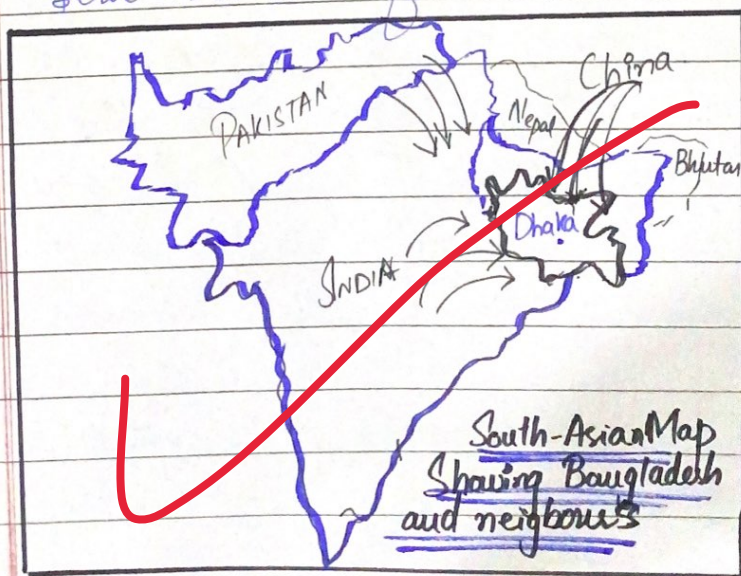 China
PAKISTAN
Nepal
Bhutan
Dhaka
INDIA
South-Asian Map
Showing Bangladesh
and neigbours